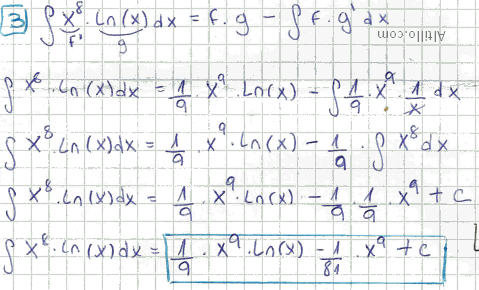 3 ∫ x⁸ · Ln(x) dx = f · g − ∫ f · g' dx
f' g
Altillo.com
∫ x⁸ · Ln(x) dx = 1/9 · x⁹ · Ln(x) − ∫ 1/9 · x⁹ · 1/x dx
∫ x⁸ · Ln(x) dx = 1/9 · x⁹ · Ln(x) − 1/9 · ∫ x⁸ dx
∫ x⁸ · Ln(x) dx = 1/9 · x⁹ · Ln(x) − 1/9 · 1/9 · x⁹ + C
∫ x⁸ · Ln(x) dx = 1/9 · x⁹ · Ln(x) − 1/81 · x⁹ + C